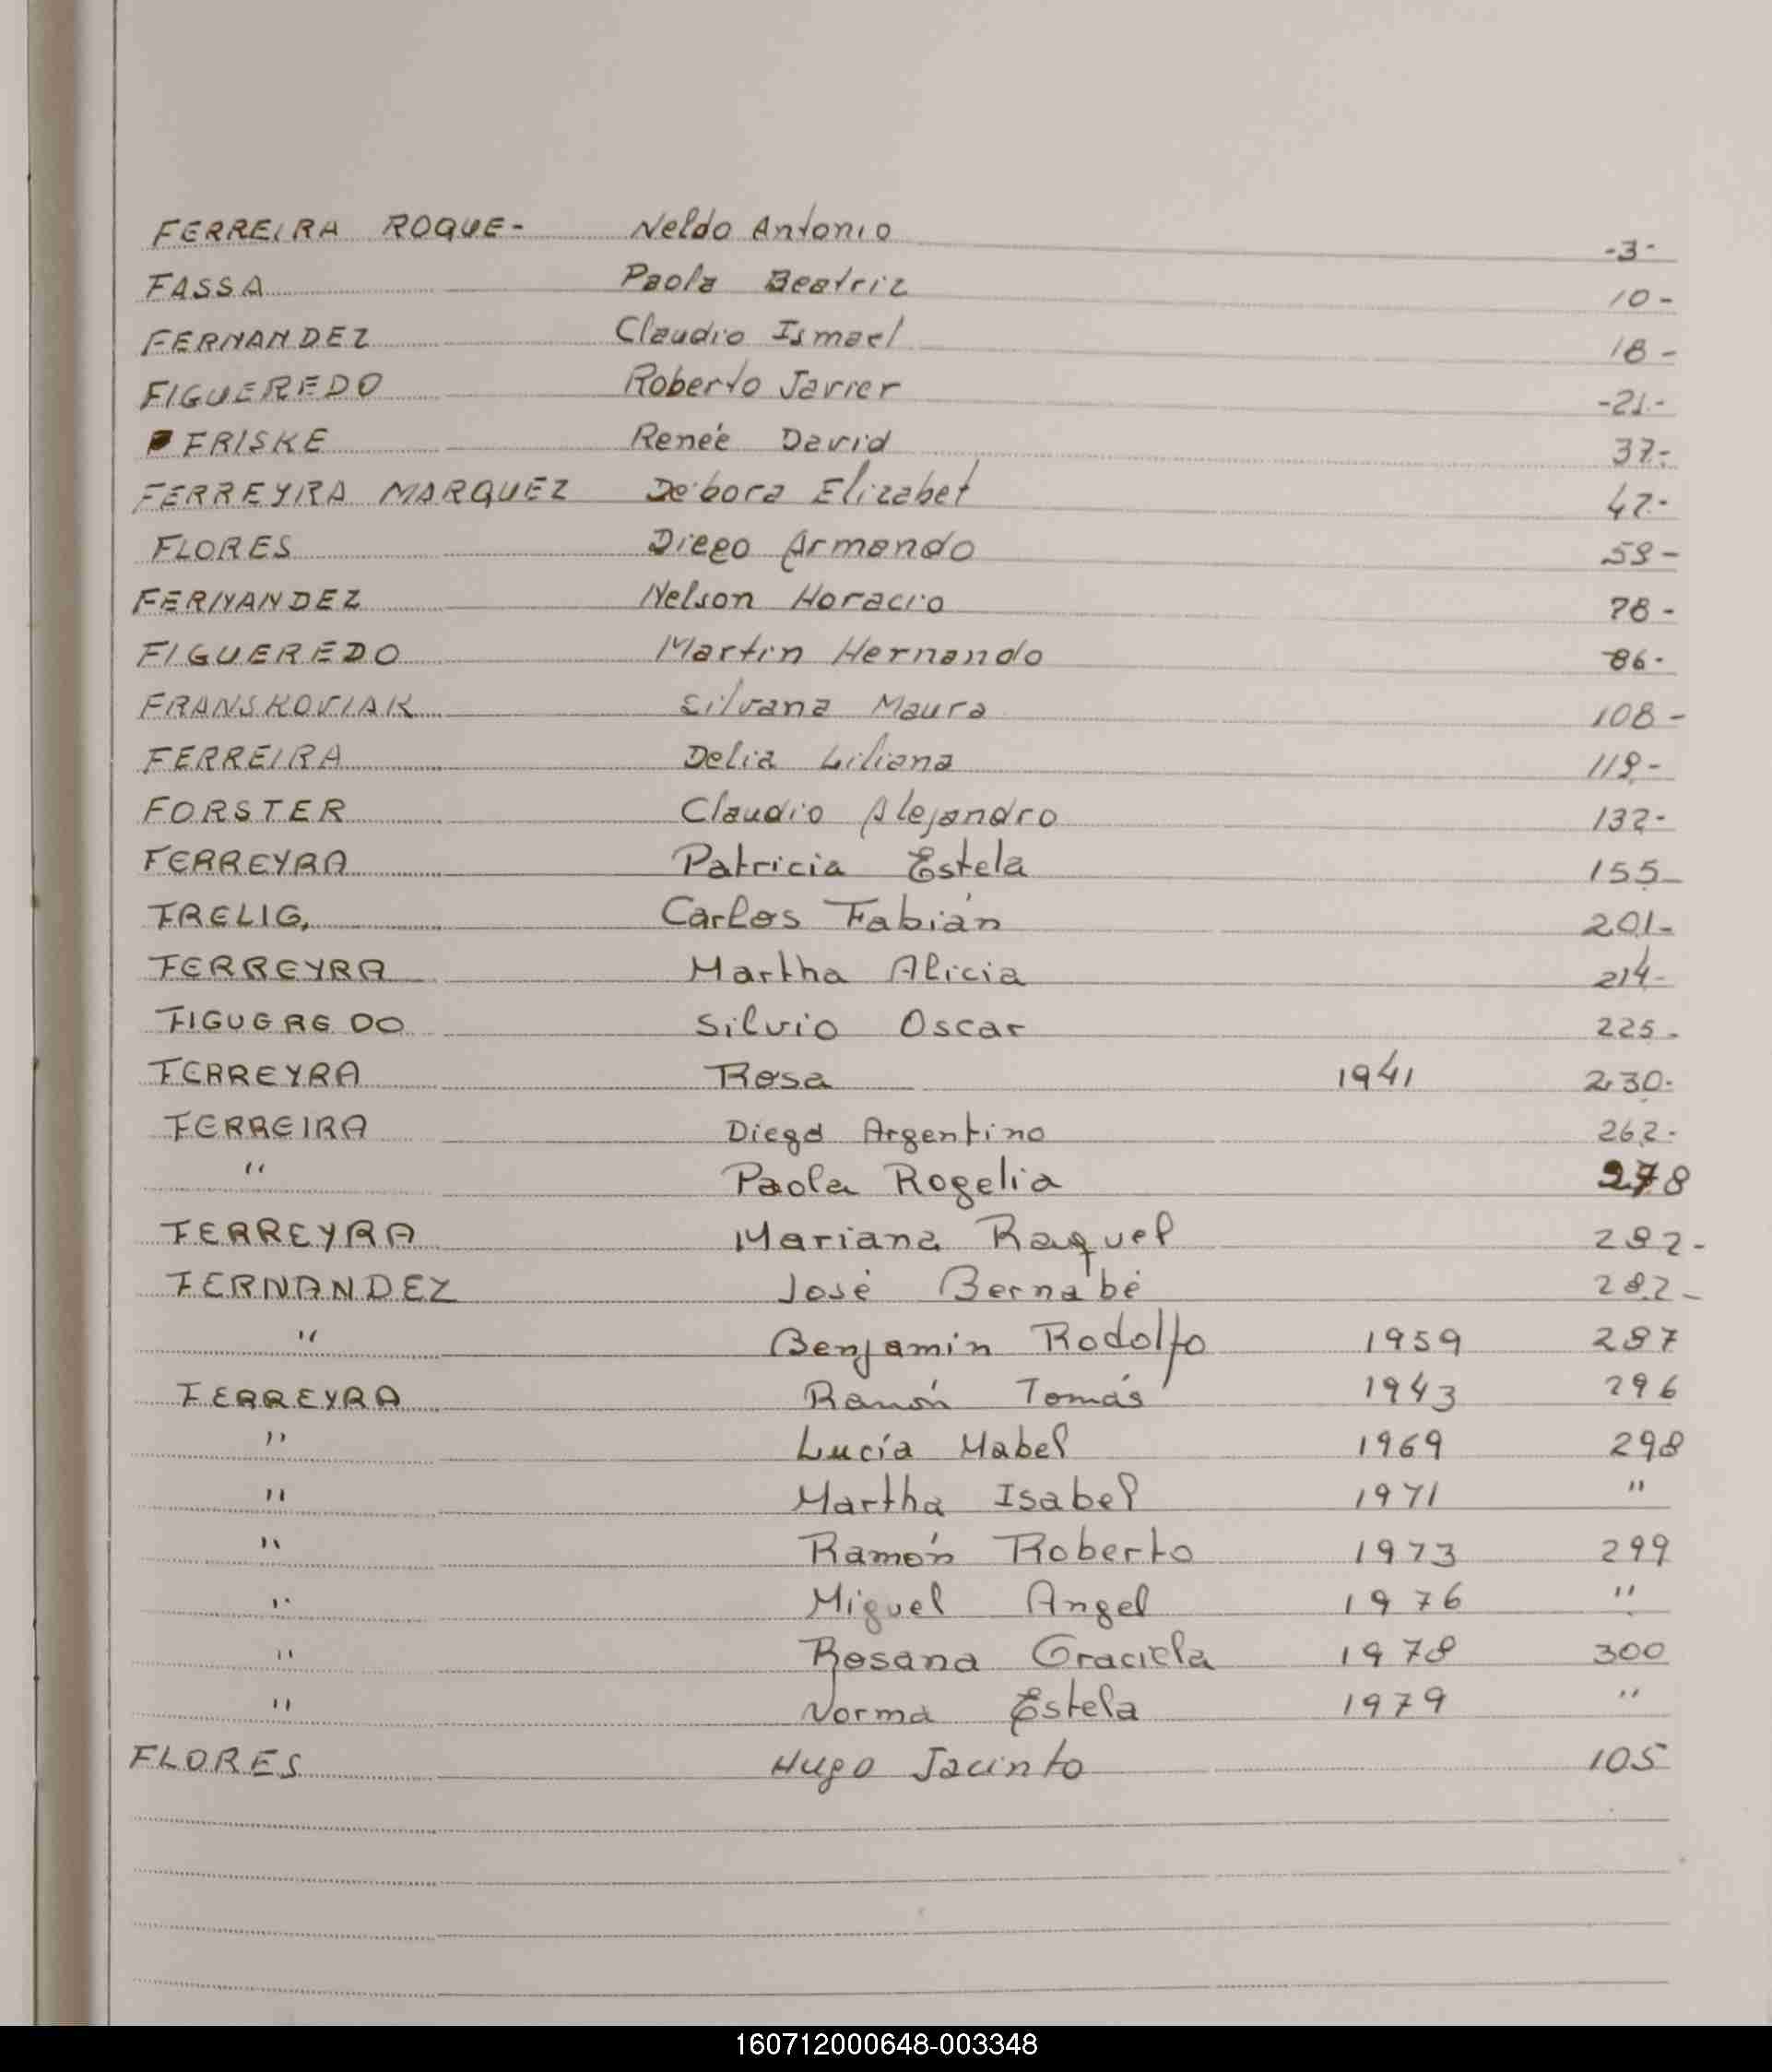 FERREIRA ROQUE- Neldo Antonio -3-
FASSA Paola Beatriz 10-
FERNANDEZ Claudio Ismael 18-
FIGUEREDO Roberto Javier -21-
FRISKE Renée David 37-
FERREYRA MARQUEZ Débora Elizabet 42-
FLORES Diego Armando 59-
FERNANDEZ Nelson Horacio 78-
FIGUEREDO Martin Hernando 86-
FRANSKOVIAK Silvana Maura 108-
FERREIRA Delia Liliana 119-
FORSTER Claudio Alejandro 132-
FERREYRA Patricia Estela 155-
FRELIG, Carlos Fabián 201-
FERREYRA Martha Alicia 214-
FIGUEREDO Silvio Oscar 225-
FERREYRA Rosa 1941 230-
FERREIRA Diego Argentino 262-
" Paola Rogelia 278
FERREYRA Mariana Raquel 282-
FERNANDEZ José Bernabé 282-
" Benjamín Rodolfo 1959 287
FERREYRA Ramón Tomás 1943 296
" Lucía Mabel 1969 298
" Martha Isabel 1971 "
" Ramón Roberto 1973 299
" Miguel Angel 1976 "
" Rosana Graciela 1978 300
" Norma Estela 1979 "
FLORES Hugo Jacinto 105
160712000648-003348